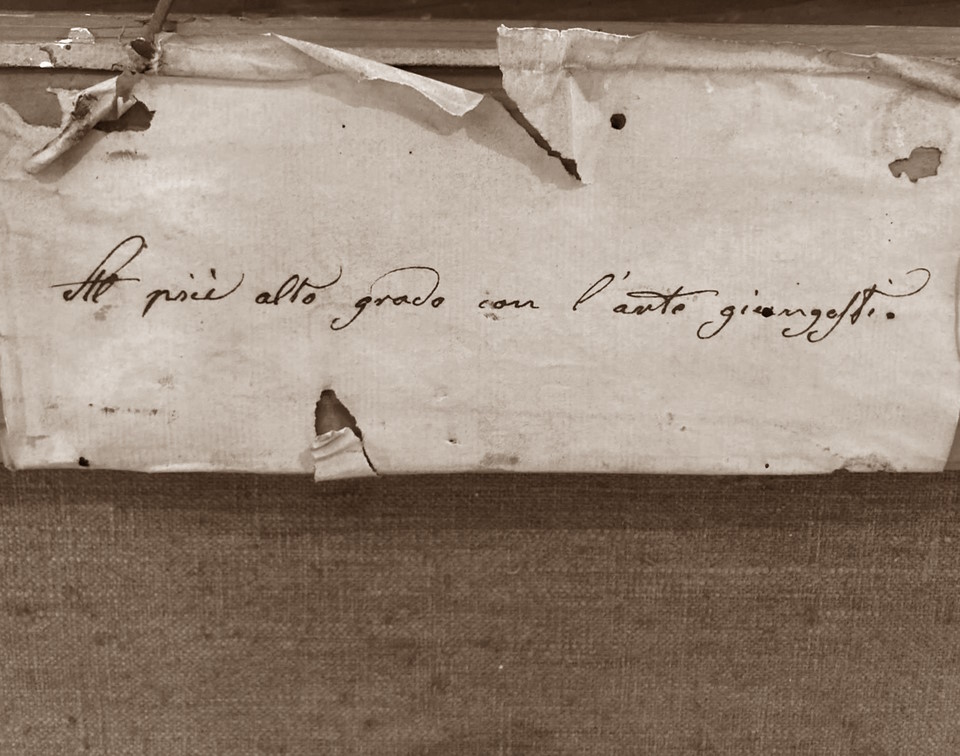 Al più alto grado con l'arte giungesti.